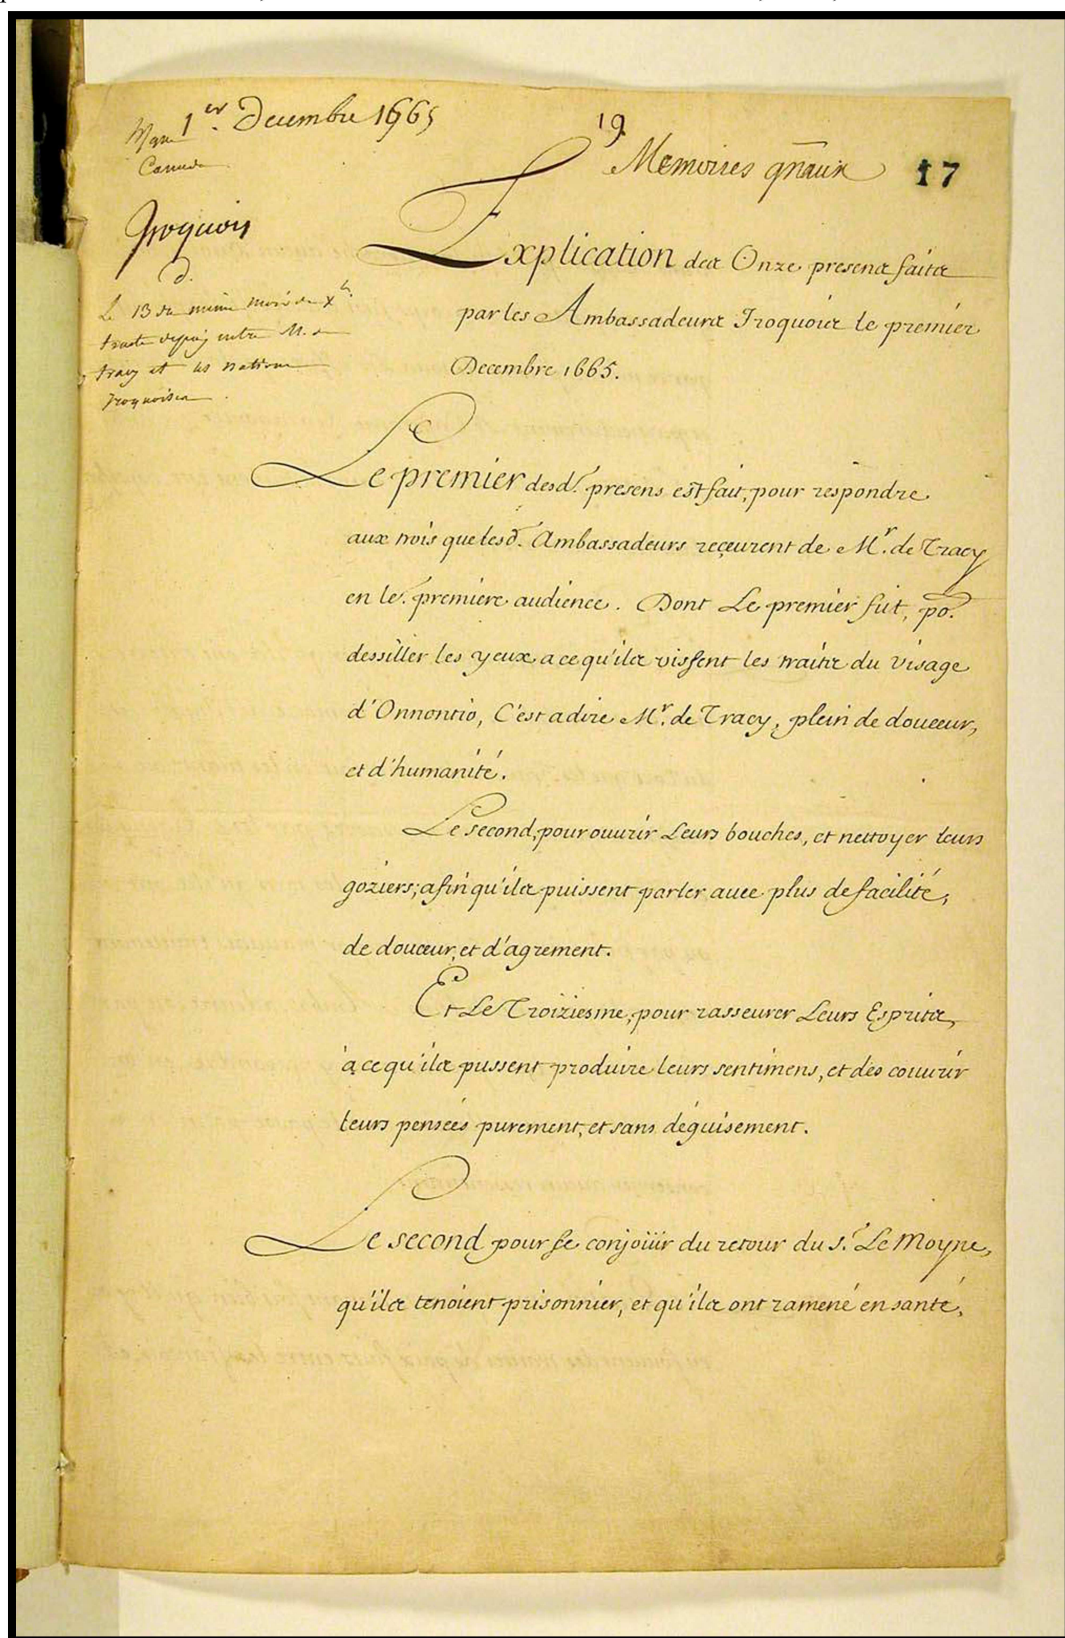 1er. Decembre 1665
Canada
19
Memoires gñaux
17
Iroquois
d.
Le 13 du meme mois de Xbre
traité depaix entre M. de
tracy et les nations
Iroquoises
Explication des Onze presens faits
par les Ambassadeurs Iroquois le premier
Decembre 1665.
Le premier desd. presens est fait, pour respondre
aux trois que lesd. Ambassadeurs reçeurent de Mr. de Tracy
en le. premiere audience. Dont Le premier fut, po.
dessiller les yeux a ce qu'ils vissent les traits du visage
d'Onnontio, C'est a dire Mr. de Tracy, plein de douceur,
et d'humanité.
Le second, pour ouurir Leurs bouches, et nettoyer leurs
goziers; afin qu'ils puissent parler auec plus de facilité,
de douceur, et d'agrement.
Et Le Troiziesme, pour rasseurer Leurs Esprits,
à ce qu'ils pussent produire leurs sentimens, et des couurir
leurs pensées purement, et sans déguisement.
Le second pour se conjoüir du retour du Sr. Le Moyne,
qu'ils tenoient prisonnier, et qu'ils ont ramené en santé,